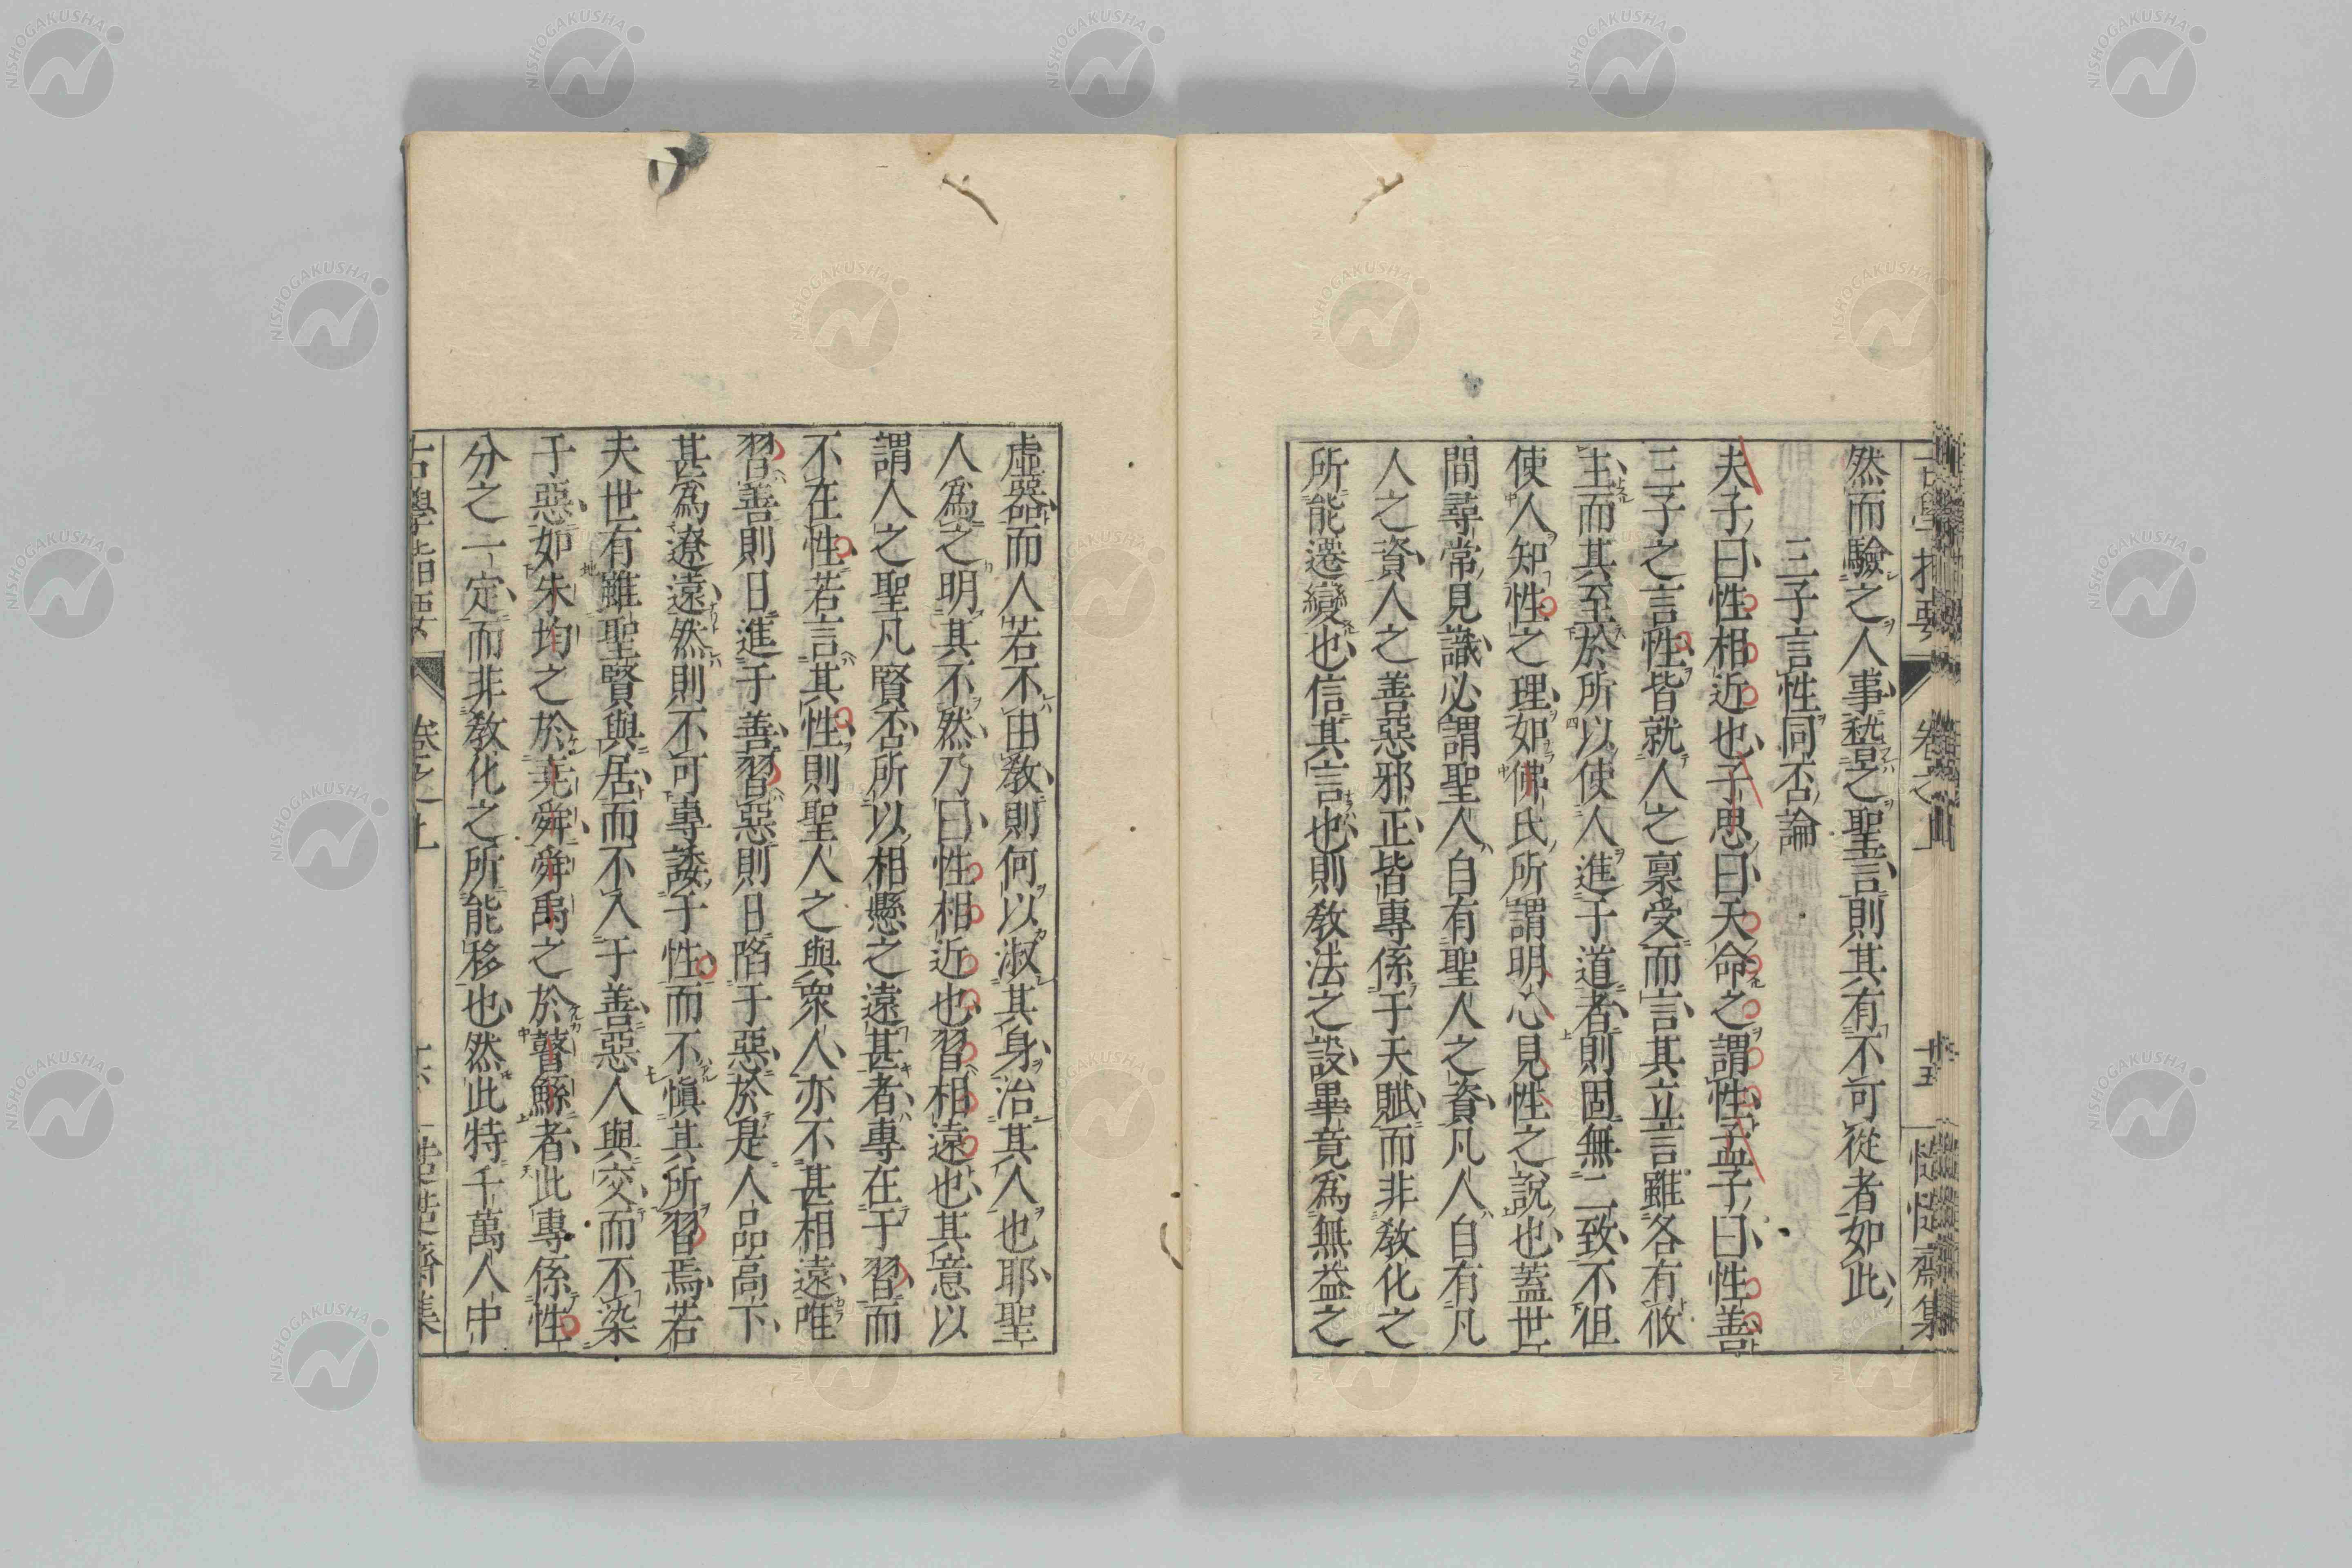 古學指要 卷之上 十五 慥慥齋集
然而驗之人事稽之聖言則其有不可從者如此
三子言性同否論
夫子曰性相近也子思曰天命之謂性孟子曰性善
三子之言性皆就人之稟受而言其立言雖各有攸
主而其至於所以使人進于道者則固無二致不徂
使人知性之理如佛氏所謂明心見性之說也蓋世
間尋常見識必謂聖人自有聖人之資凡人自有凡
人之資人之善惡邪正皆專係于天賦而非教化之
所能遷變也信其言也則教法之設畢竟爲無益之
虛器而人若不由教則何以淑其身治其人也耶聖
人爲之明其不然乃曰性相近也習相遠也其意以
謂人之聖凡賢否所以相懸之遠甚者專在于習而
不在性若言其性則聖人之與衆人亦不甚相遠唯
習善則日進于善習惡則日陷于惡於是人品高下
甚爲遼遠然則不可專諉于性而不愼其所習焉若
夫世有雖聖賢與居而不入于善惡人與交而不染
于惡如朱均之於堯舜舜禹之於瞽鯀者此專係性
分之一定而非教化之所能移也然此特千萬人中
古學指要 卷之上 十六 慥慥齋集
NISHOGAKUSHA